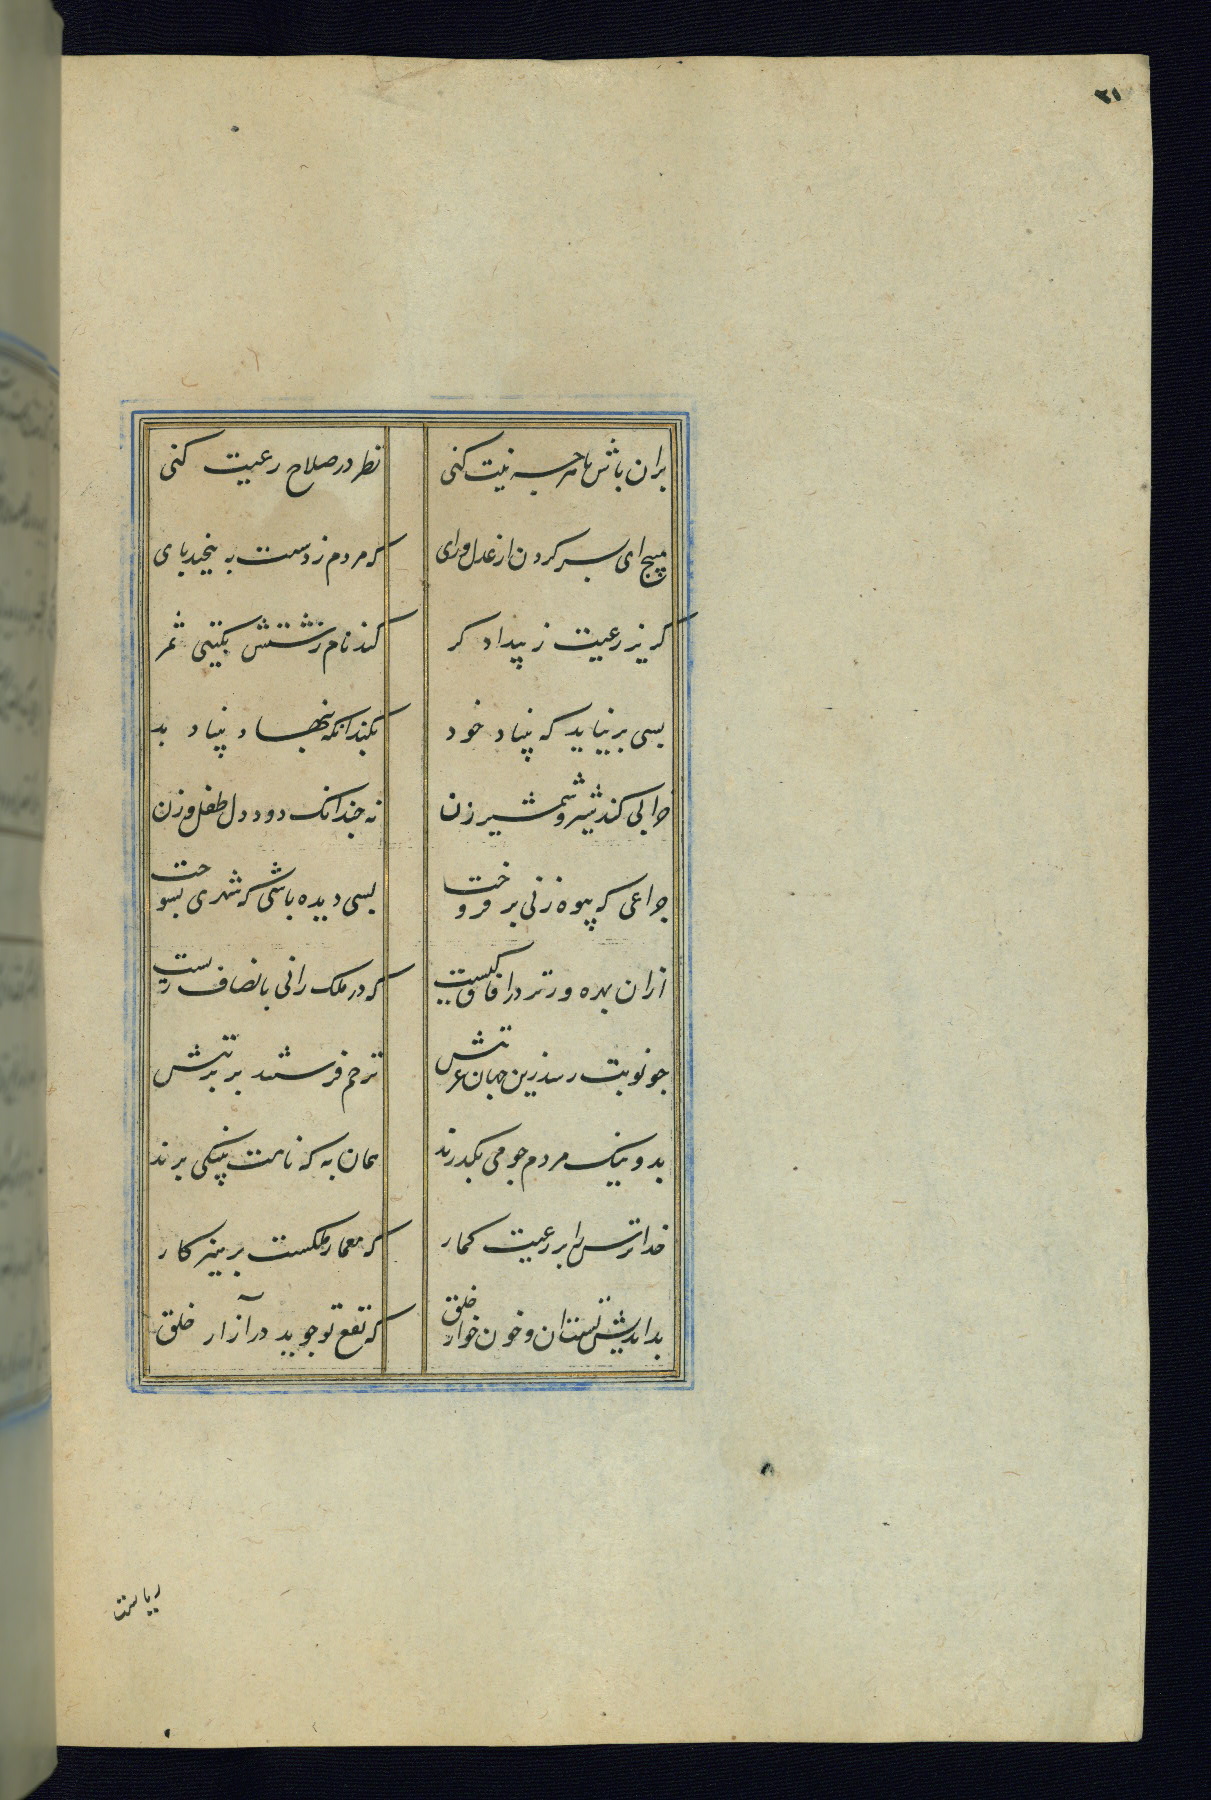 ۲۱
بران باش تا هر چه نیت کنی نظر در صلاح رعیت کنی
مپیچ ای پسر کردن از عدل و رای که مردم ز دستت نپیچند پای
کریزد رعیت ز بیداد کر کند نام زشتش بکیتی سمر
بسی بر نیاید که بنیاد خود بکند آنکه بنهاد بنیاد بد
خرابی کند شیر و شمشیر زن نه چندانک دود دل طفل و زن
چراغی که بیوه زنی بر فروخت بسی دیده باشی که شهری بسوخت
ازان بهره ورتر در آفاق کیست که در ملک رانی بانصاف زیست
چو نوبت رسد زین جهان غربتش ترحم فرستند بر تربتش
بد و نیک مردم چو می بکذرند همان به که نامت بنیکی برند
خدا ترس را بر رعیت کمار که معمار ملکست پرهیزکار
بد اندیش تست آن و خون خوار خلق که نفع تو جوید در آزار خلق
ریاست